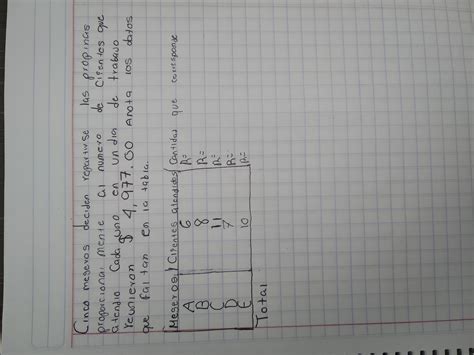 Cinco meseros deciden repartirse las propinas
proporcional mente al numero de clientes que
atendio cada uno en un dia de trabajo
reunieron $ 4,977.00 Anota los datos
que faltan en la tabla.
Meseros Clientes atendidos Cantidad que corresponde
A 6 R=
B 8 R=
C 11 R=
D 7 R=
E 10 R=
Total